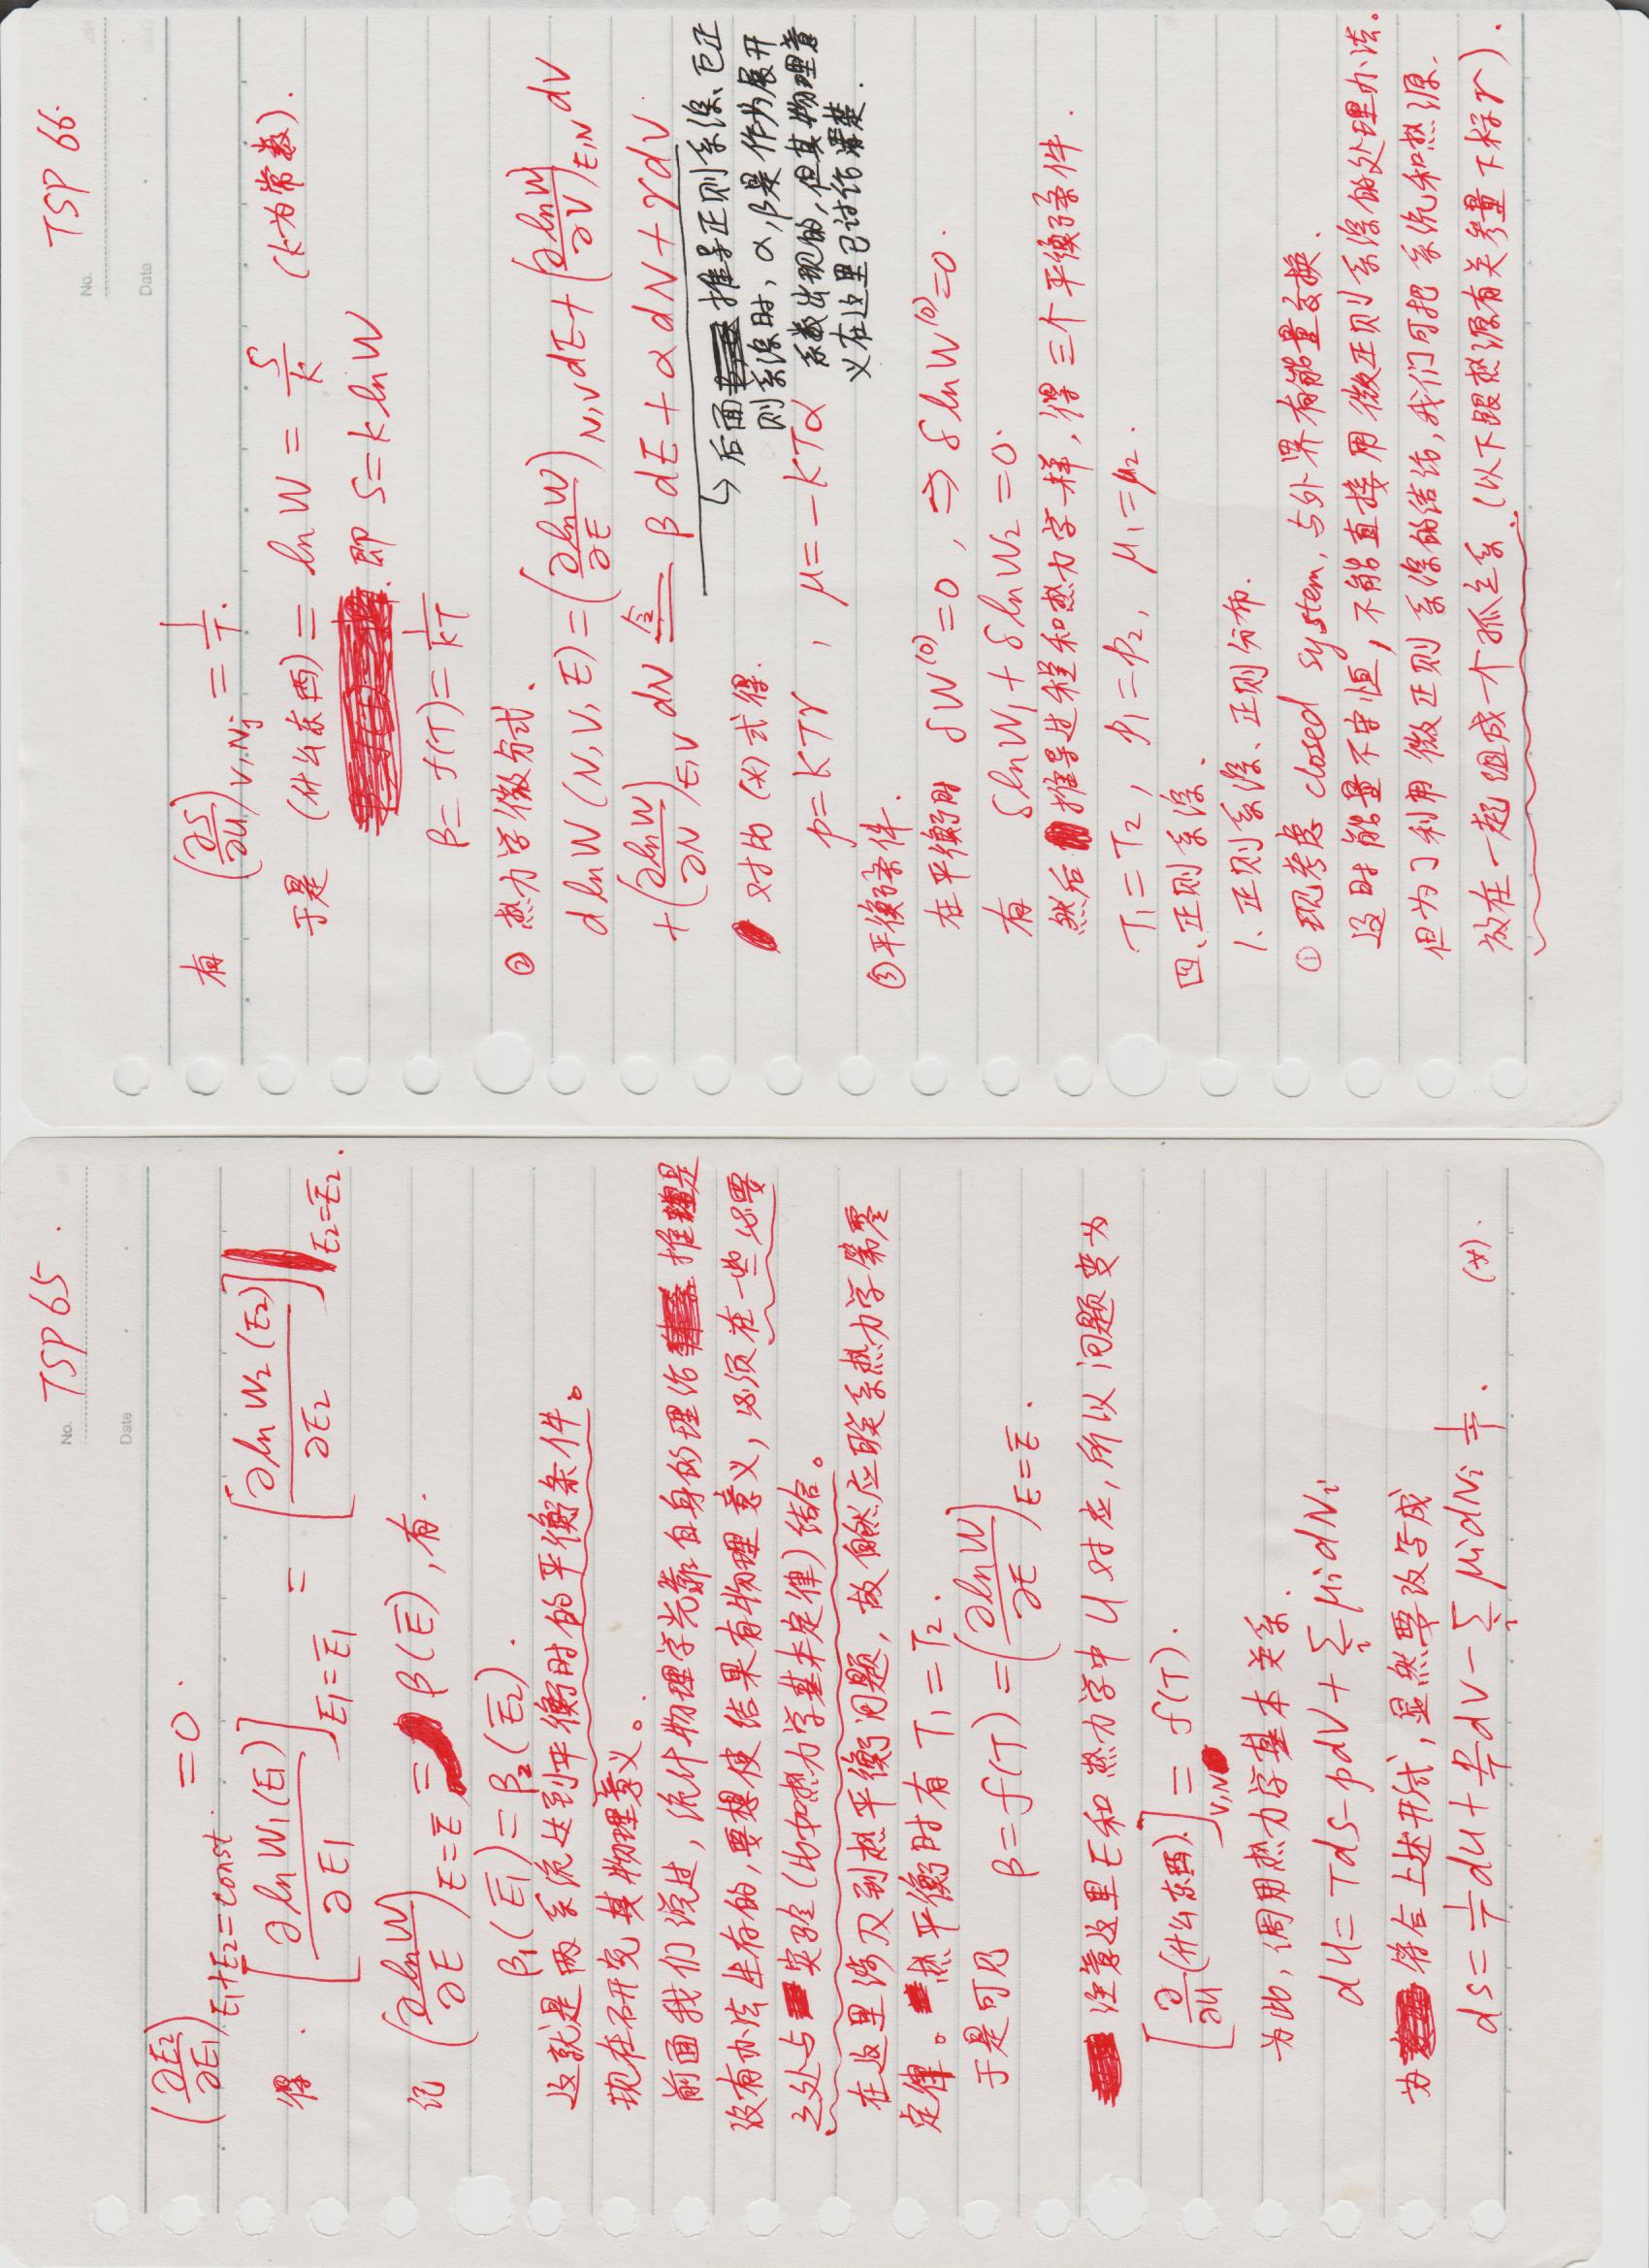 No. TSP 65.
Date
(∂E₂/∂E₁)_{E₁+E₂=const.} = 0.
得. [∂ln W₁(E₁)/∂E₁]_{E₁=Ē₁} = [∂ln W₂(E₂)/∂E₂]_{E₂=Ē₂}.
记 (∂lnW/∂E)_{E=Ē} = β(Ē), 有.
β₁(Ē₁) = β₂(Ē₂).
这就是两系统达到平衡时的平衡条件。
现在研究其物理意义。
前面我们说过, 统计物理学光靠自身的理论推理是
没有办法生存的, 要想使结果有物理意义, 必须在一些必要
之处与实验(比如热力学基本定律)结合。
在这里涉及到热平衡问题, 故自然应联系热力学第零
定律。热平衡时有 T₁=T₂.
于是可见 β = f(T) = (∂lnW/∂E)_{E=Ē}.
注意这里E和热力学中U对应, 所以问题变为
[∂/∂U (什么东西)]_{V,N} = f(T).
为此, 调用热力学基本关系.
dU = TdS - pdV + Σ_i μ_i dN_i
为符合上述形式, 显然要改写成
dS = 1/T dU + p/T dV - Σ_i μ_i dN_i 1/T. (*).
No. TSP 66.
Date
有 (∂S/∂U)_{V,Nj} = 1/T.
于是 (什么东西) = ln W = S/k (k为常数).
即 S = k ln W
β = f(T) = 1/kT
② 热力学微分式.
d lnW (N, V, E) = (∂lnW/∂E)_{N,V} dE + (∂lnW/∂V)_{E,N} dV
+ (∂lnW/∂N)_{E,V} dN 令= β dE + α dN + γ dV.
↳ 后面推导正则系综、巨正
则系综时, α, β是作为展开
系数出现的, 但其物理意
义在这里已讨论清楚.
对比 (*) 式得.
p = kTγ , μ = -kTα
③ 平衡条件.
在平衡时 δW⁽⁰⁾=0 , ⇒ δlnW⁽⁰⁾=0.
有 δlnW₁ + δlnW₂ = 0.
然后推导过程和热力学一样, 得三个平衡条件.
T₁=T₂, p₁=p₂, μ₁=μ₂.
四、正则系综.
1、正则系综、正则分布.
① 现考虑 closed system, 与外界有能量交换.
这时能量不守恒, 不能直接用微正则系综的处理办法。
但为了利用微正则系综的结论, 我们可把系统和热源.
放在一起组成一个孤立系.(以下跟热源有关参量下标r).